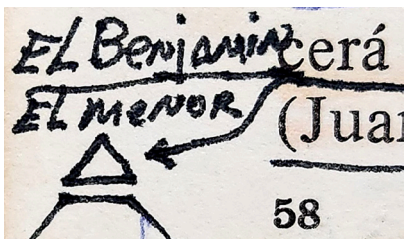 EL Benjamin cerá
EL menor (Juan
58